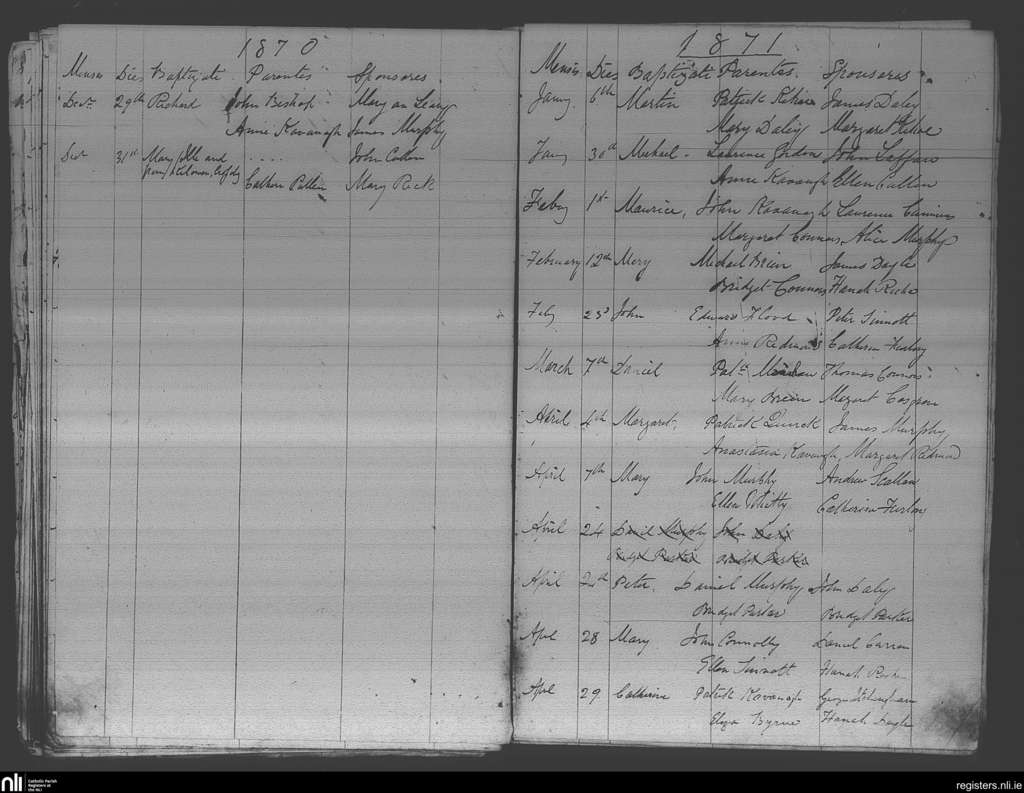 1870
Menses Dies Baptizate Parentes Sponsores
Decr 29th Richard John Bishop Mary an Leary
Annie Kavanagh James Murphy
Decr 31st Mary Ille and . . . . John Cullen
Cathern Mary Rock
1871
Menses Dies Baptizate Parentes Sponsores
Jany 6th Martin Patrick James Daly
Mary Daly Margaret
Jany 30th Michael Laurence Gordon John Caffrey
Annie Kavanagh Ellen Cullen
Feby 1st Maurice John Kavanagh Laurence
Margaret Connors Alice Murphy
February 12th Mary Michael Brien James Doyle
Bridget Connors Hanah Roche
Feby 23d John Edward Flood Peter Sinnott
Annie Redmond Catherin
March 7th Daniel Patk Thomas Connors
Mary Brien Margaret Cosgrave
April 4th Margaret Patrick James Murphy
Anastasia Kavanagh Margaret Redmond
April 7th Mary John Murphy Andrew Scallan
Ellen Whitty Catherine Furlong
April 24 Daniel Murphy John Daly
Bridget Parker Bridget Parker
April 24th Peter Daniel Murphy John Daly
Bridget Parker Bridget Parker
April 28 Mary John Connolly Daniel Curran
Ellen Sinnott Hanah
April 29 Catherine Patrick Kavanagh
Eliza Byrne Hanah Doyle
nli
Catholic Parish
Registers at
the NLI
registers.nli.ie